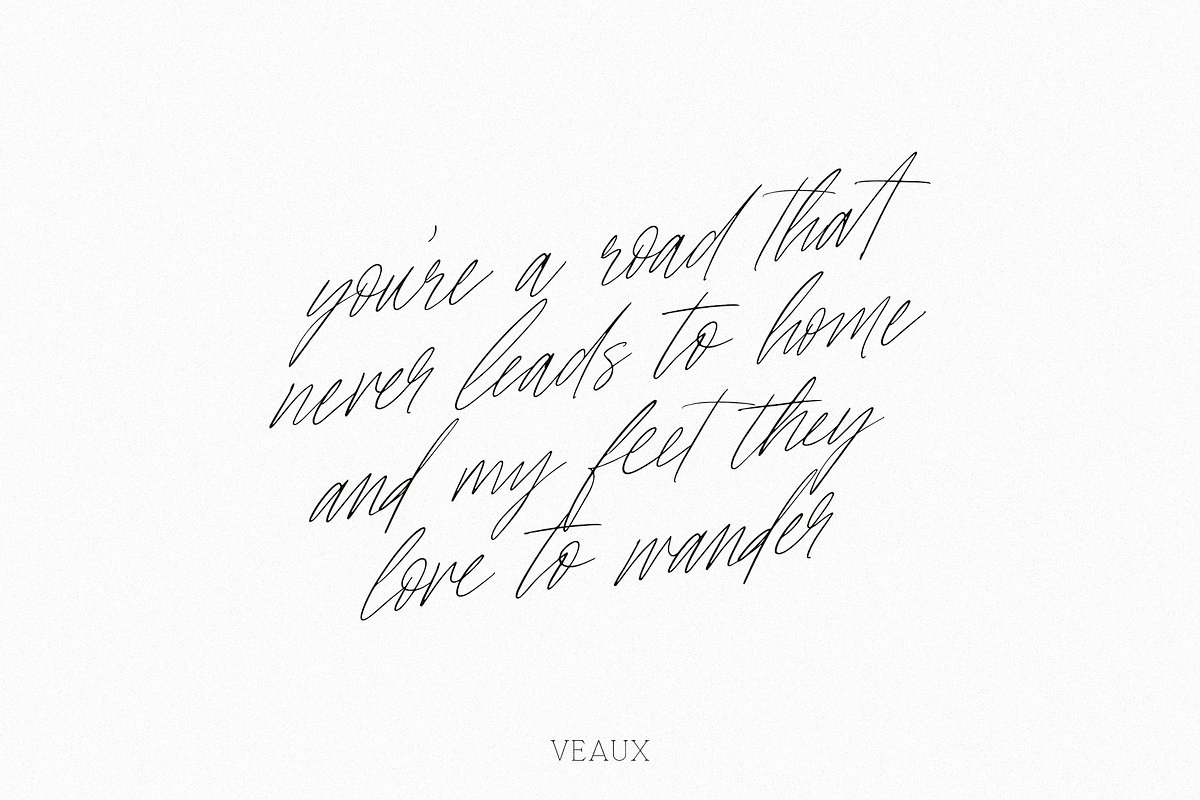 you're a road that
never leads to home
and my feet they
love to wander
VEAUX